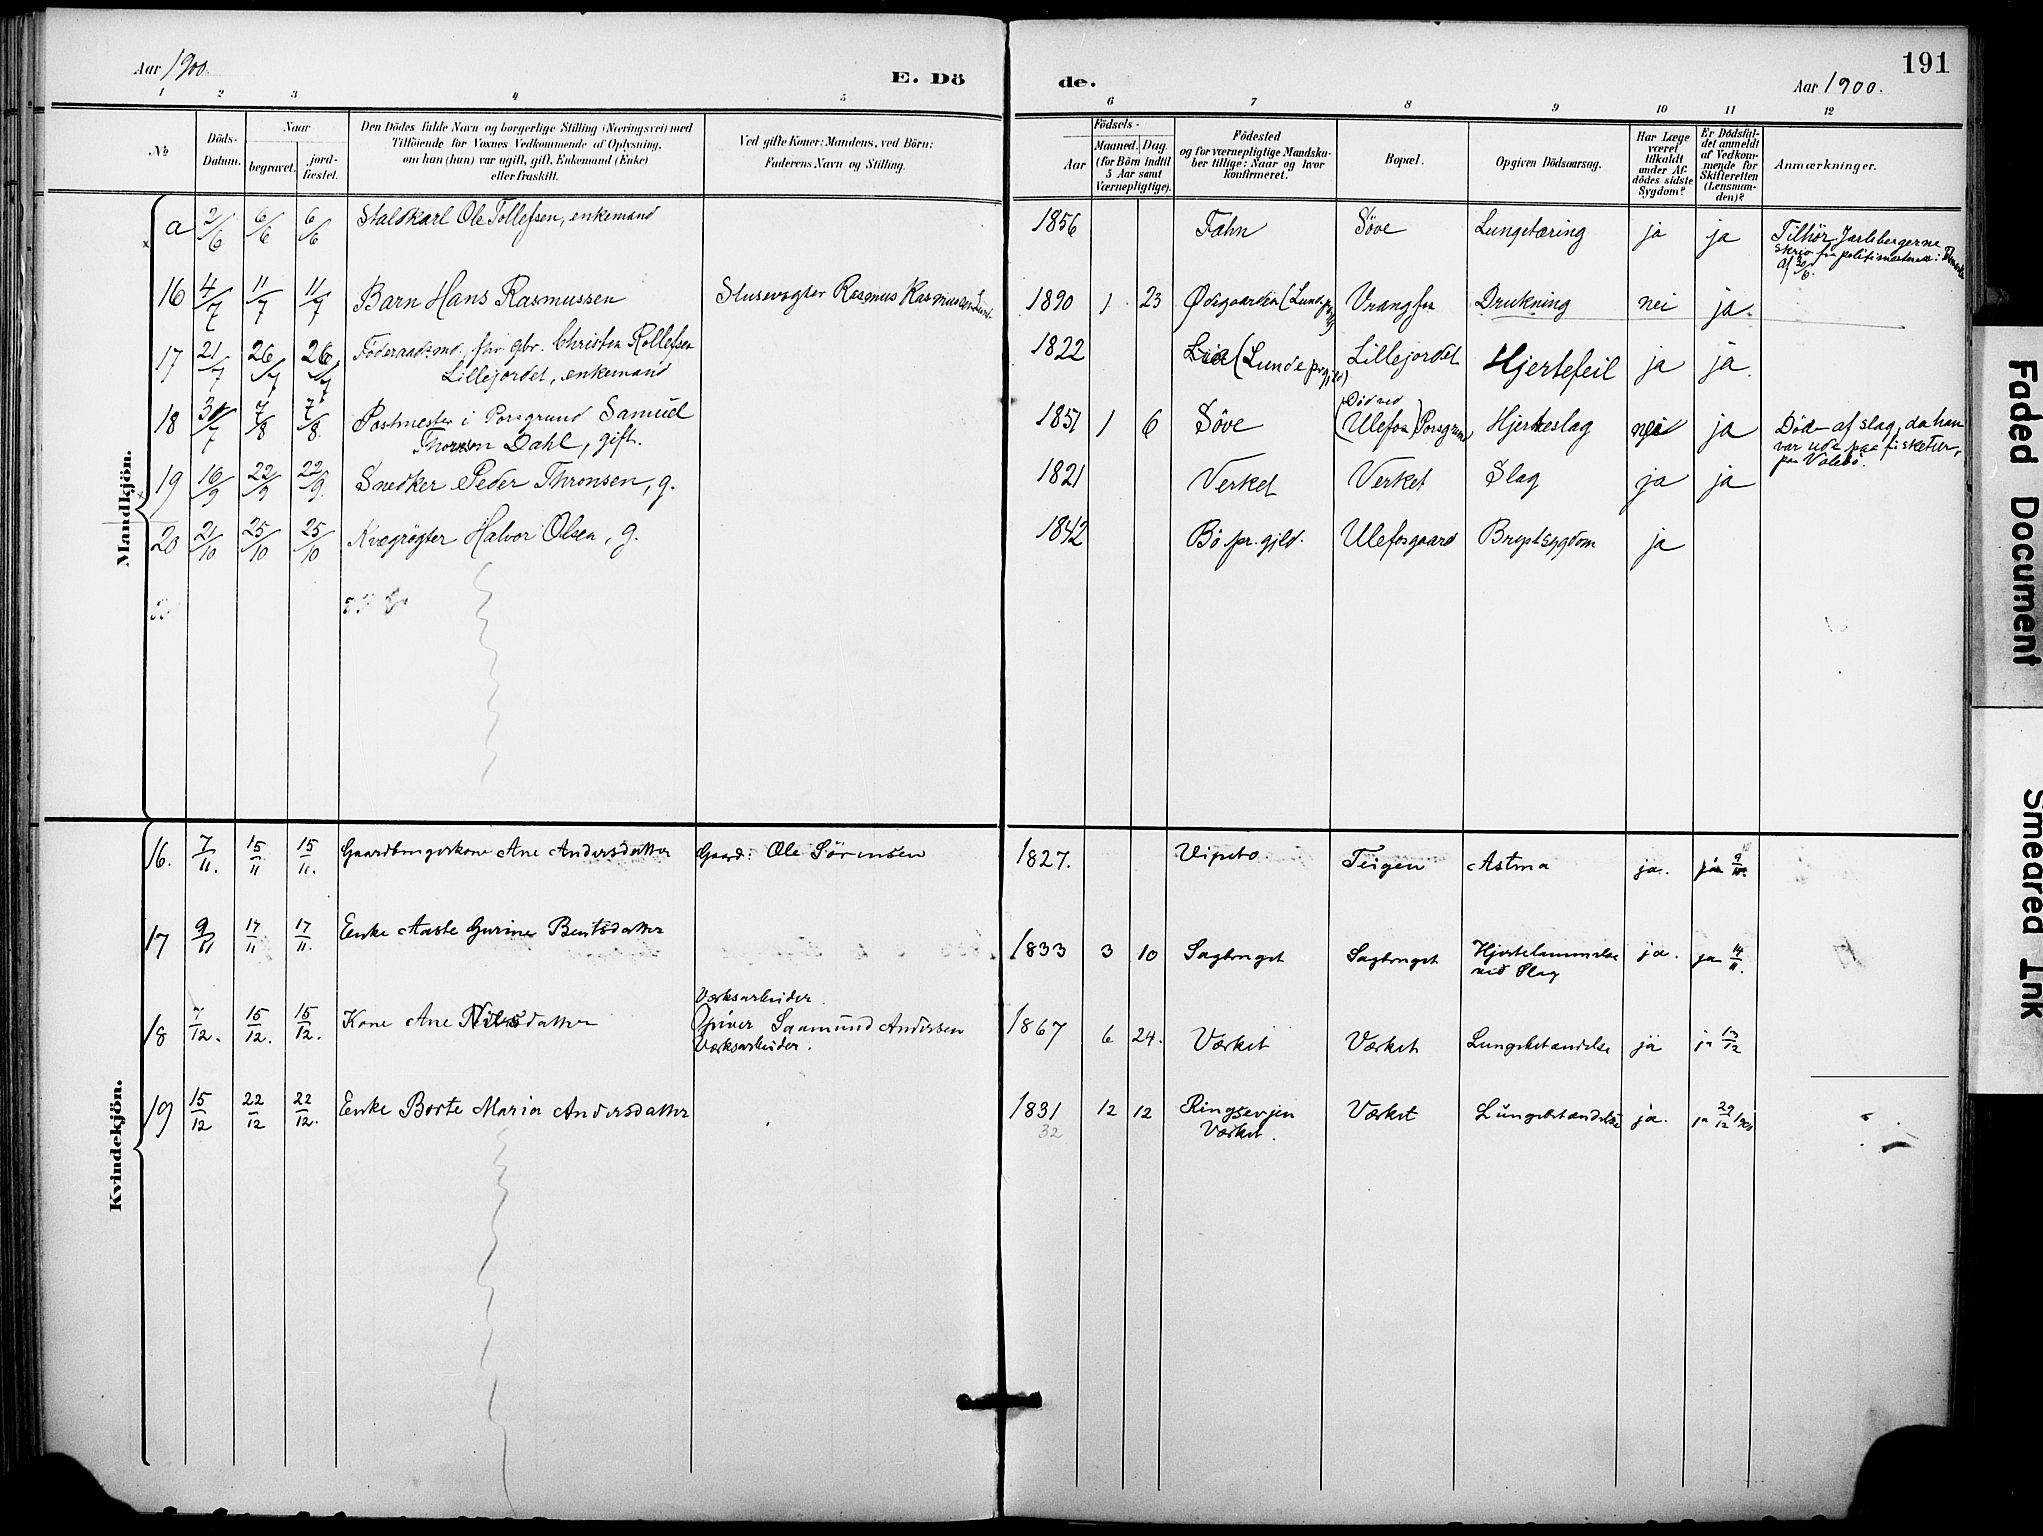 Aar 1900.
E. Dö
de.
Aar 1900.
191
1 2 3 4 5 6 7 8 9 10 11 12
№
Döds-Datum.
Naar
begravet.
jord-fæstet.
Den Dödes fulde Navn og borgerlige Stilling (Næringsvei) med
Tilföiende for Voxnes Vedkommende af Oplysning,
om han (hun) var ugift, gift, Enkemand (Enke)
eller fraskilt.
Ved gifte Koner: Mandens, ved Börn:
Faderens Navn og Stilling.
Födsels-
Aar
Maaned. Dag.
(for Börn indtil
5 Aar samt
Værnepligtige).
Födested
og for værnepligtige Mandska-
ber tillige: Naar og hvor
konfirmeret.
Bopæl.
Opgiven Dödsaarsag.
Har Læge
været
tilkaldt
under Af-
dödes sidste
Sygdom?
Er Dödsfal-
det anmeldt
af Vedkom-
mende for
Skifteretten
(Lensman-
den)?
Anmærkninger.
Mandkjön.
a 2/6 6/6 6/6 Staldkarl Ole Tollefsen, enkemand 1856 Fahn Söve Lungetæring ja ja Tilhör Jarlsbergerne
skriv fra politimesteren i
af 30/6.
16 4/7 11/7 11/7 Barn Hans Rasmussen Slusevogter Rasmus Rasmussen 1890 1 23 Ødegaarden (Lunde Vrangfos Drukning nei ja.
17 21/7 26/7 26/7 Föderaadsmd. fhv. gbr. Christen Rollefsen
Lillejordet, enkemand 1822 Lia (Lunde prgjeld) Lillejordet Hjertefeil ja ja.
18 30/7 7/8 7/8 Postmester i Porsgrund Samuel
Thorsen Dahl, gift. 1851 1 6 Söve (Död ved
Ulefos) Porsgrund Hjerteslag nei ja Död af slag, da han
var ude paa fisketur,
paa Valebö.
19 16/9 22/9 22/9 Snedker Peder Thronsen, g. 1821 Verket Verket Slag ja ja
20 21/10 25/10 25/10 Kvægrögter Halvor Olsen, g. 1842 Bö pr. gjld. Ulefosgaard Brystsygdom ja
Kvindekjön.
16. 7/11. 15/11 15/11. Gaardbrugerkone Ane Andersdatter Gaard: Ole Sörensen 1827. Vipeto. Teigen Astma ja. ja 9/11.
17 9/11 17/11 17/11. Enke Aaste Gurine Bentsdatter 1833 3 10 Sagbruget Sagbruget Hjertelammelse
ved Slag ja. ja 14/11.
18 7/12. 15/12. 15/12. Kone Ane Nilsdatter Værksarbeider.
Saamund Andersen
Værksarbeider. 1867 6 24. Værket Værket Lungebetændelse ja ja 13/12
19 15/12 22/12 22/12. Enke Borte Maria Andersdatter 1831 12 12 Ringsevjen
32 Værket. Værket Lungebetændelse ja. ja 29/12 1900
Faded Document
Smeared Ink